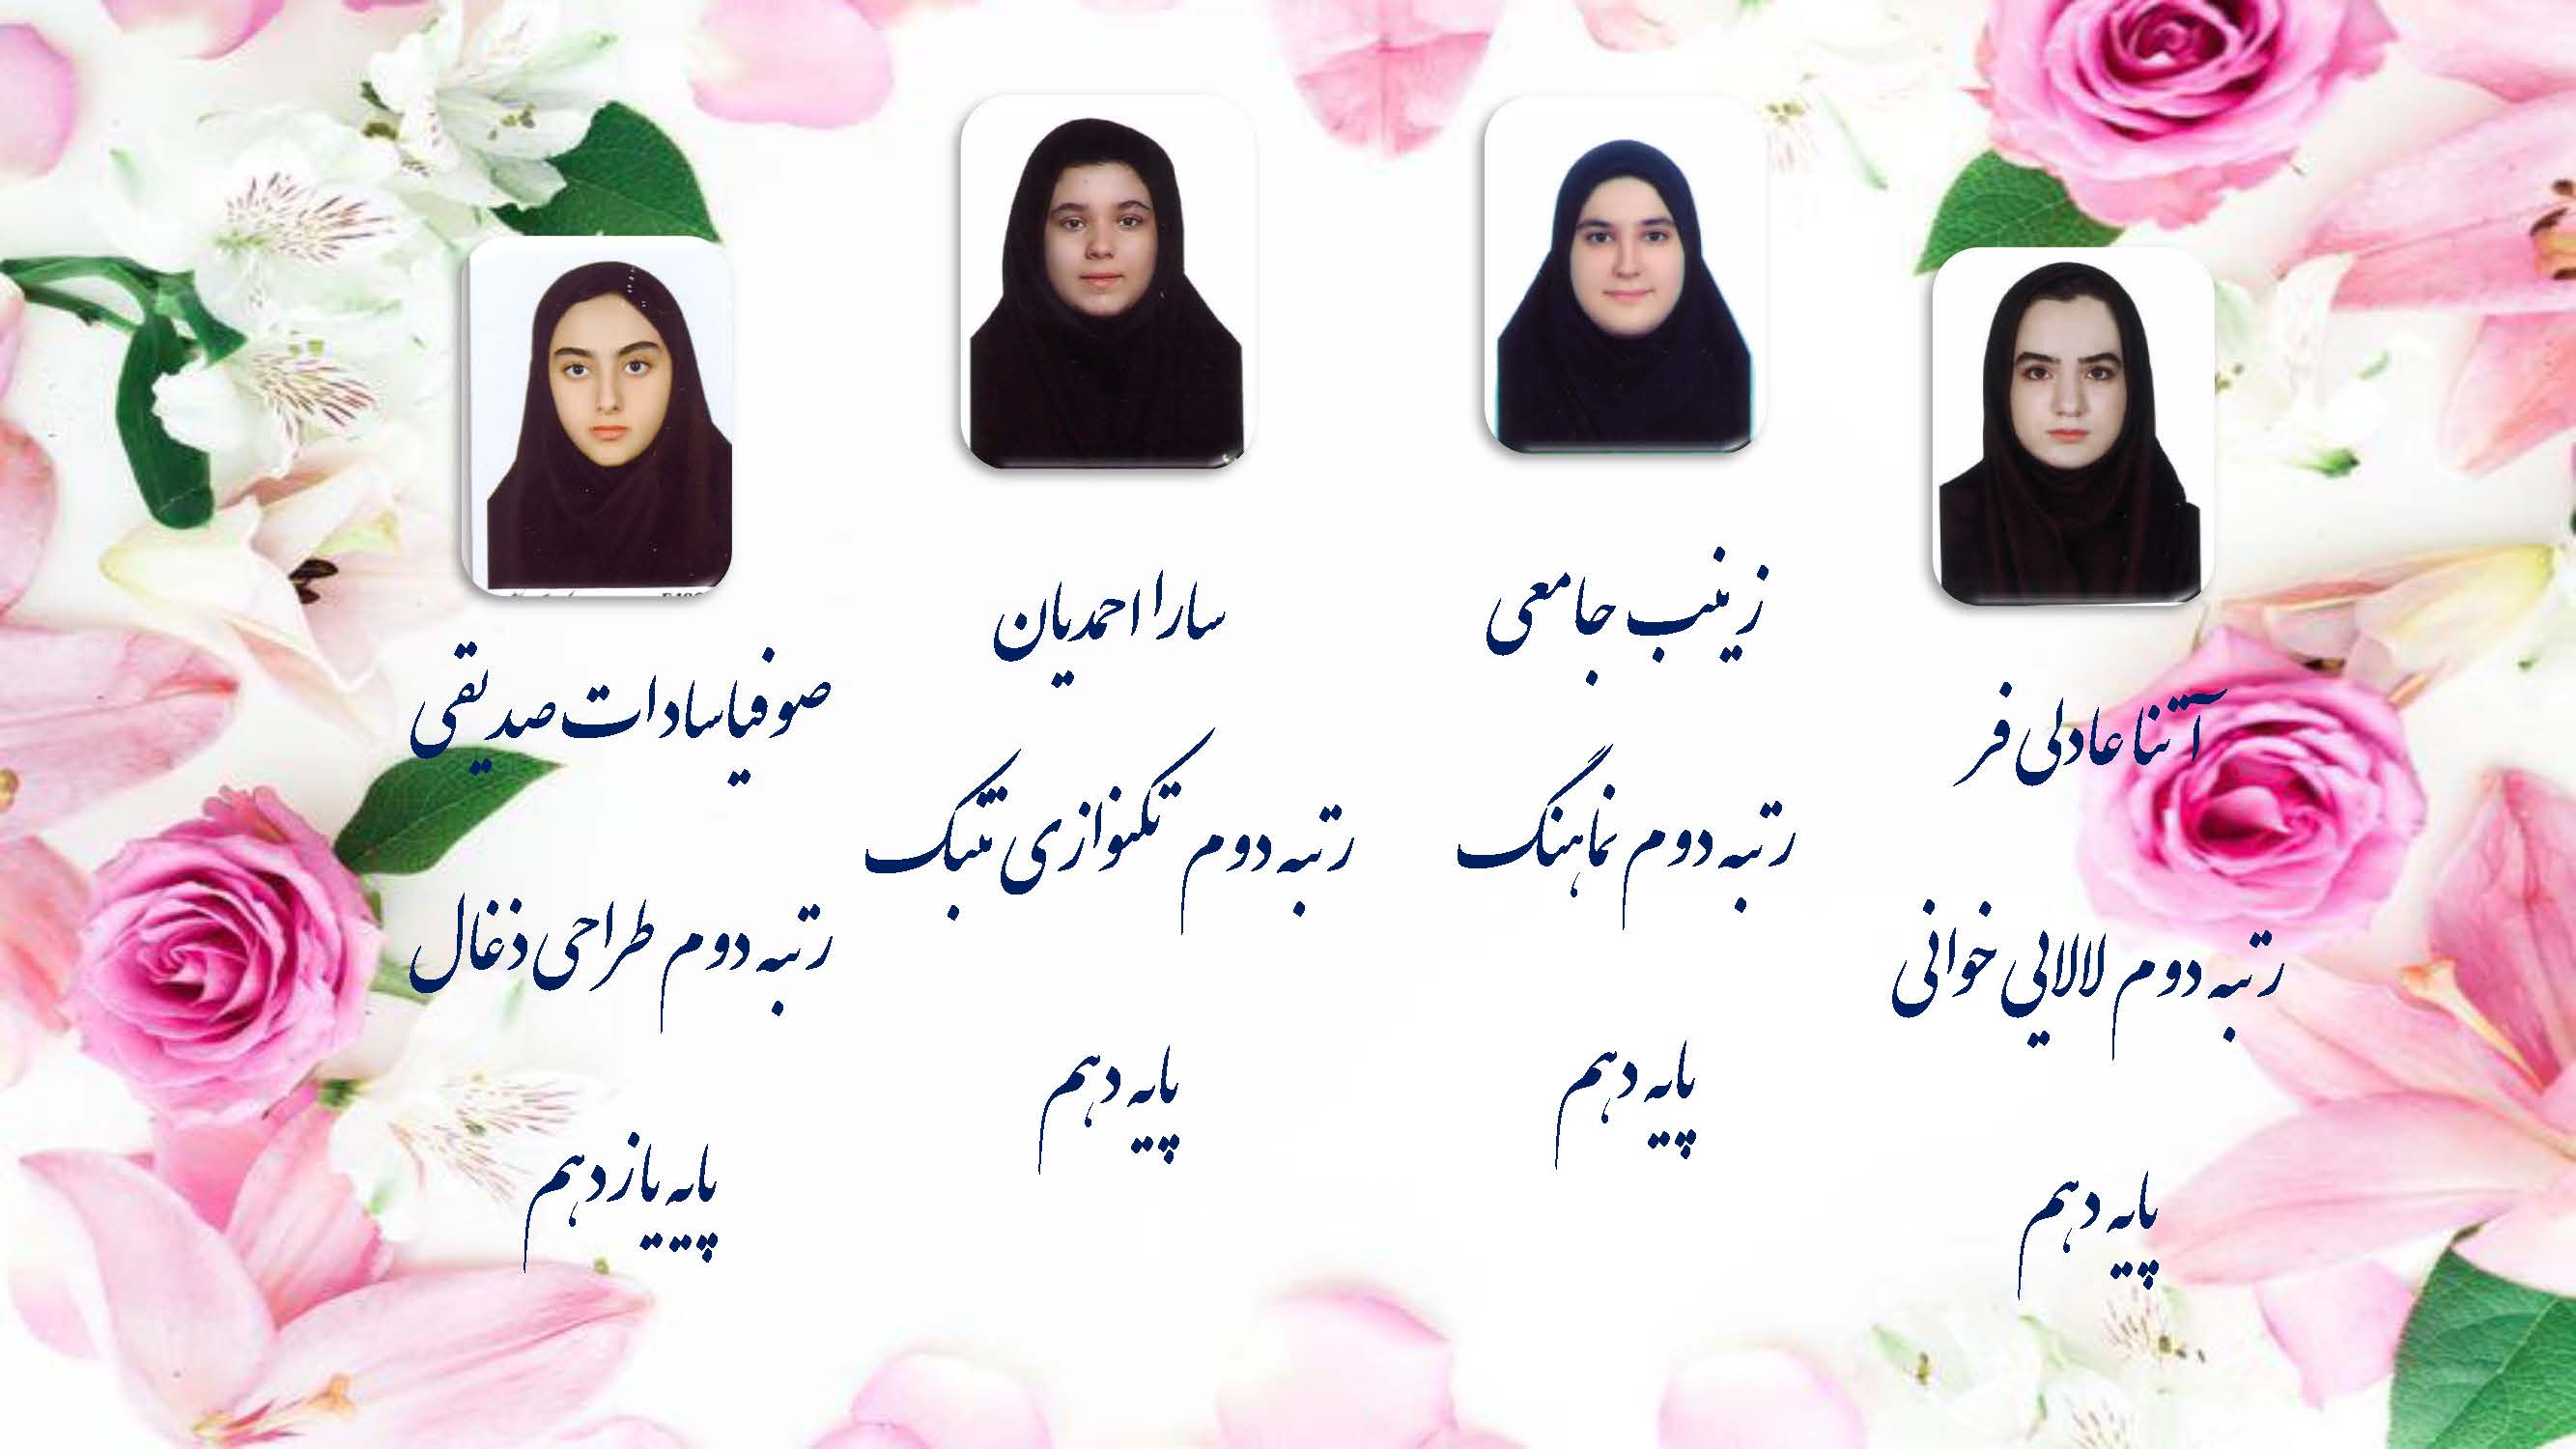 آتنا عادلی فر
رتبه دوم لالایی خوانی
پایه دهم
زینب جامعی
رتبه دوم نماهنگ
پایه دهم
سارا احمدیان
رتبه دوم تکنوازی تنبک
پایه دهم
صوفیاسادات صدیقی
رتبه دوم طراحی ذغال
پایه یازدهم